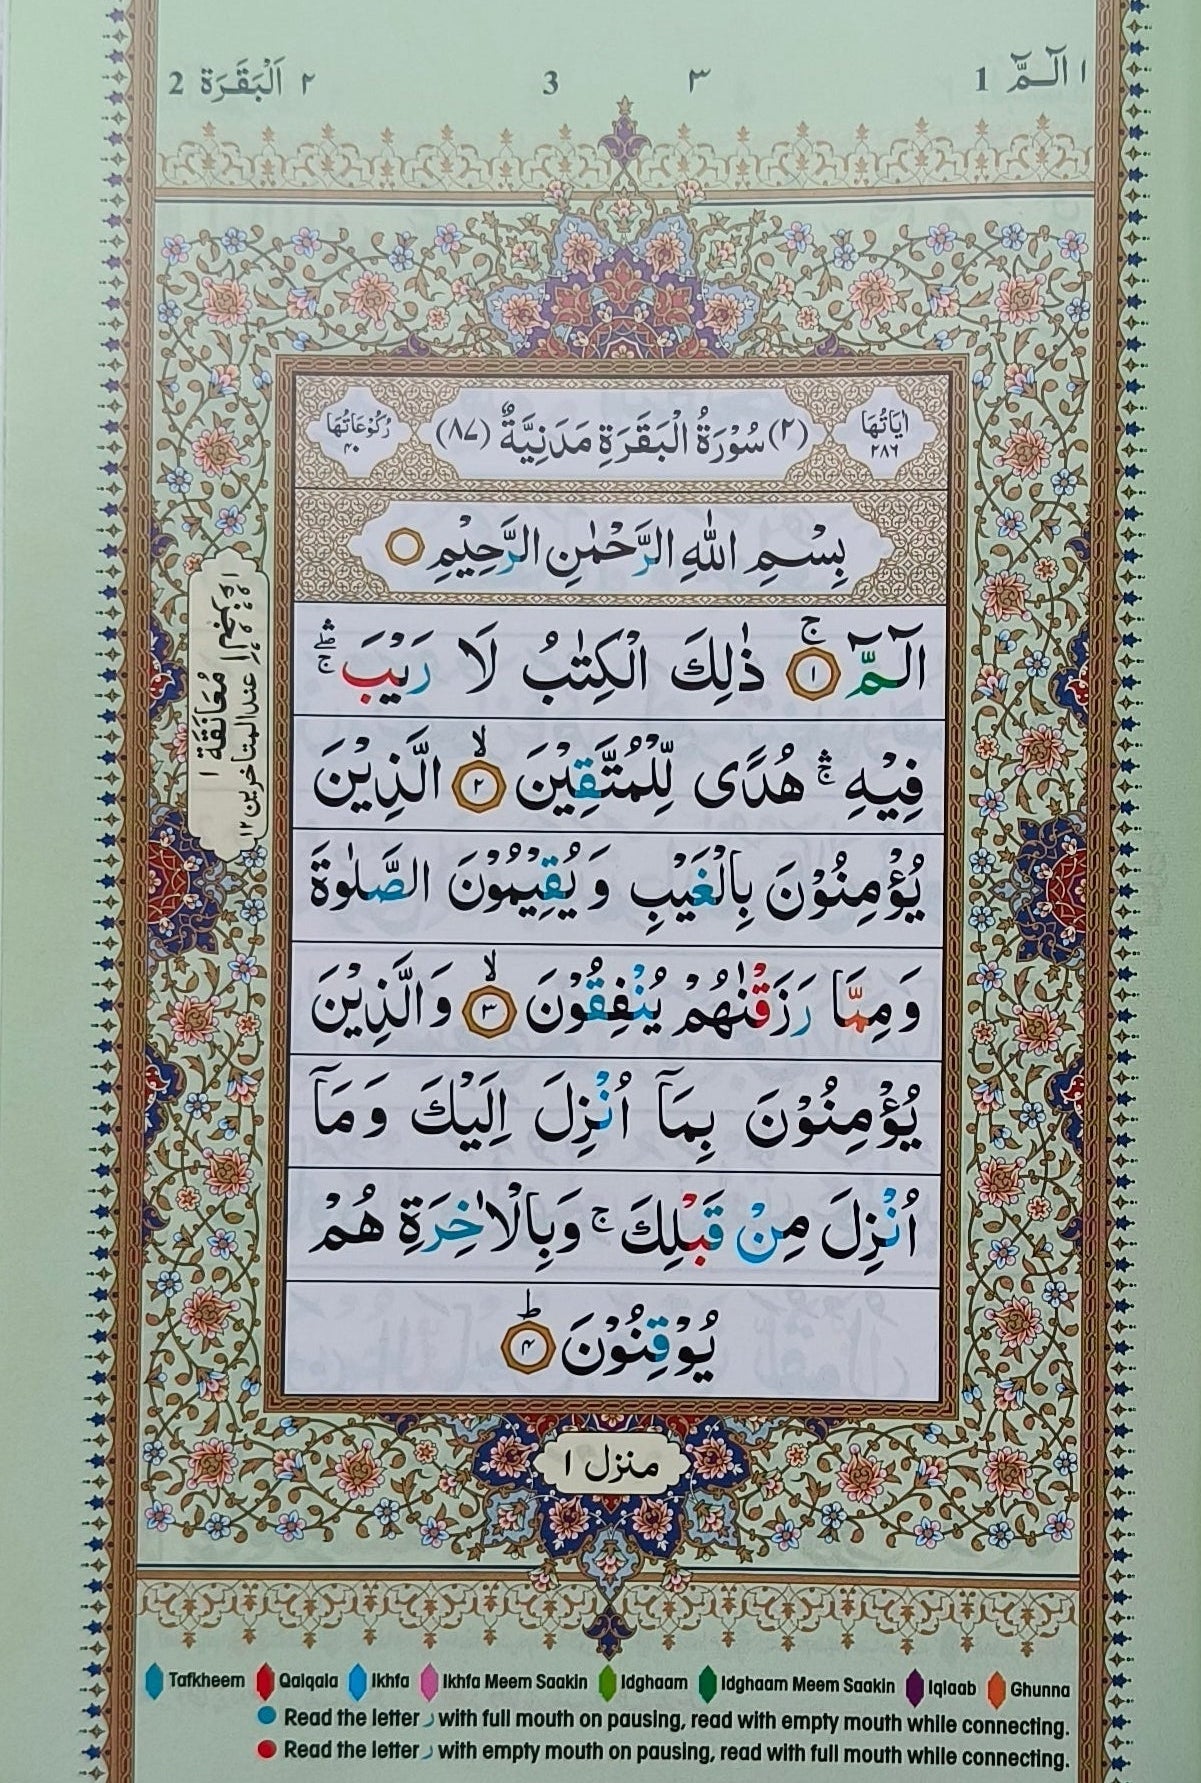 ١ الٓـمّٓ 1 ٣ 3 ٢ اَلْبَقَرَة 2
اٰيَاتُهَا ٢٨٦ (٢) سُوْرَةُ الْبَقَرَةِ مَدَنِيَّةٌ (٨٧) رُكُوْعَاتُهَا ٤٠
بِسْمِ اللّٰهِ الرَّحْمٰنِ الرَّحِيْمِ
الٓـمّٓ ۚ ١ ذٰلِكَ الْكِتٰبُ لَا رَيْبَ ۛۚ
فِيْهِ ۛۚ هُدًى لِّلْمُتَّقِيْنَ ۙ ٢ الَّذِيْنَ
يُؤْمِنُوْنَ بِالْغَيْبِ وَ يُقِيْمُوْنَ الصَّلٰوةَ
وَ مِمَّا رَزَقْنٰهُمْ يُنْفِقُوْنَ ۙ ٣ وَ الَّذِيْنَ
يُؤْمِنُوْنَ بِمَآ اُنْزِلَ اِلَيْكَ وَ مَآ
اُنْزِلَ مِنْ قَبْلِكَ ۚ وَ بِالْاٰخِرَةِ هُمْ
يُوْقِنُوْنَ ؕ ٤
مُعَانَقَة ١
عند المتاخرين ١٢
منزل ١
Tafkheem Qalqala Ikhfa Ikhfa Meem Saakin Idghaam Idghaam Meem Saakin Iqlaab Ghunna
Read the letter ر with full mouth on pausing, read with empty mouth while connecting.
Read the letter ر with empty mouth on pausing, read with full mouth while connecting.